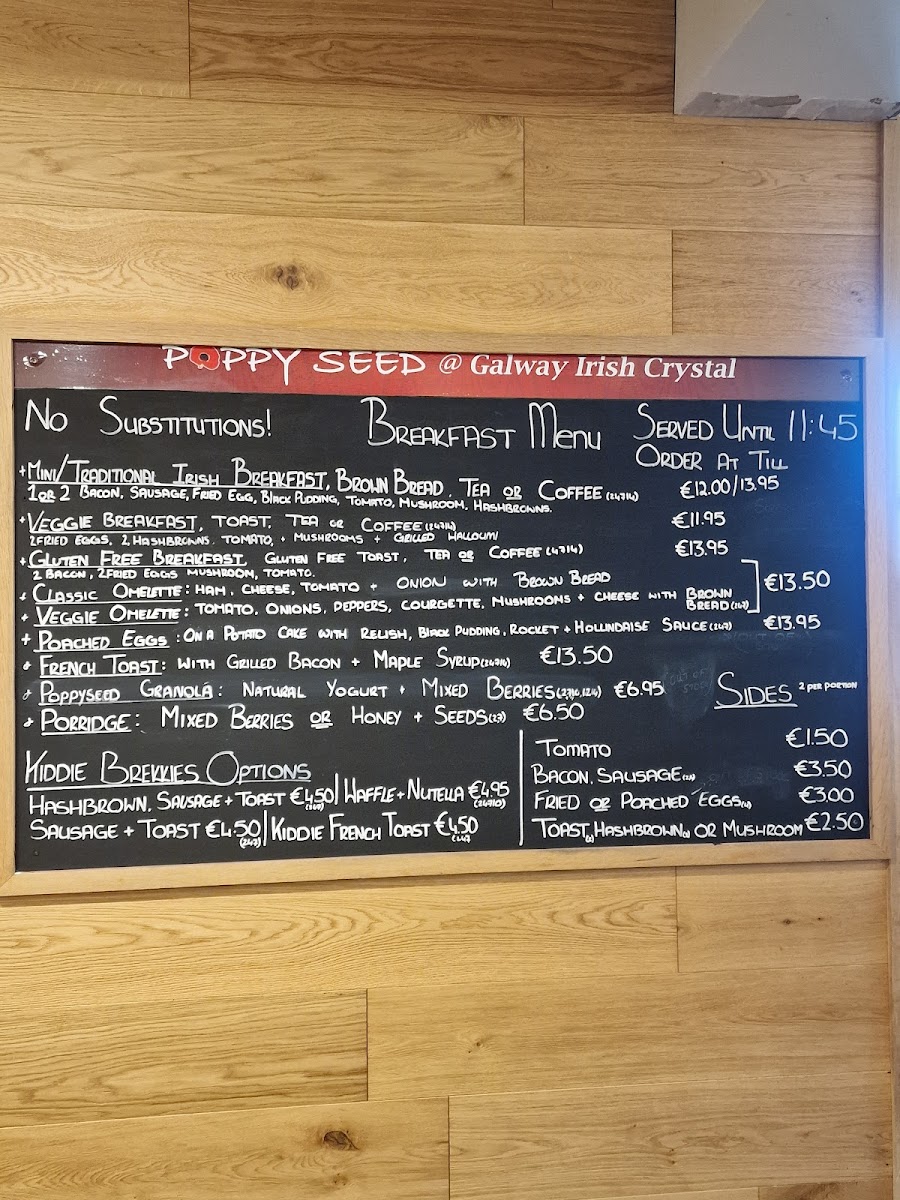 POPPY SEED @ Galway Irish Crystal
No Substitutions! Breakfast Menu Served Until 11:45
Order At Till
+ Mini/Traditional Irish Breakfast, Brown Bread, Tea or Coffee (24714) €12.00/13.95
1 or 2 Bacon, Sausage, Fried Egg, Black Pudding, Tomato, Mushroom, Hashbrowns.
+ Veggie Breakfast, Toast, Tea or Coffee (24714) €11.95
2 Fried Eggs, 2 Hashbrowns, Tomato, + Mushrooms + Grilled Halloumi
+ Gluten Free Breakfast, Gluten Free Toast, Tea or Coffee (4714) €13.95
2 Bacon, 2 Fried Eggs Mushroom, Tomato.
+ Classic Omelette: Ham, Cheese, Tomato + Onion with Brown Bread €13.50
+ Veggie Omelette: Tomato, Onions, Peppers, Courgette, Mushrooms + Cheese with Brown Bread (247)
+ Poached Eggs: On a Potato Cake with Relish, Black Pudding, Rocket + Hollindaise Sauce (247) €13.95
+ French Toast: with Grilled Bacon + Maple Syrup (24714) €13.50
+ Poppyseed Granola: Natural Yogurt + Mixed Berries €6.95
+ Porridge: Mixed Berries or Honey + Seeds (2,7) €6.50
Sides 2 per portion
Tomato €1.50
Bacon, Sausage €3.50
Fried or Poached Eggs €3.00
Toast, Hashbrown or Mushroom €2.50
Kiddie Brekkies Options
Hashbrown, Sausage + Toast €4.50 | Waffle + Nutella €4.95
Sausage + Toast €4.50 (247) | Kiddie French Toast €4.50